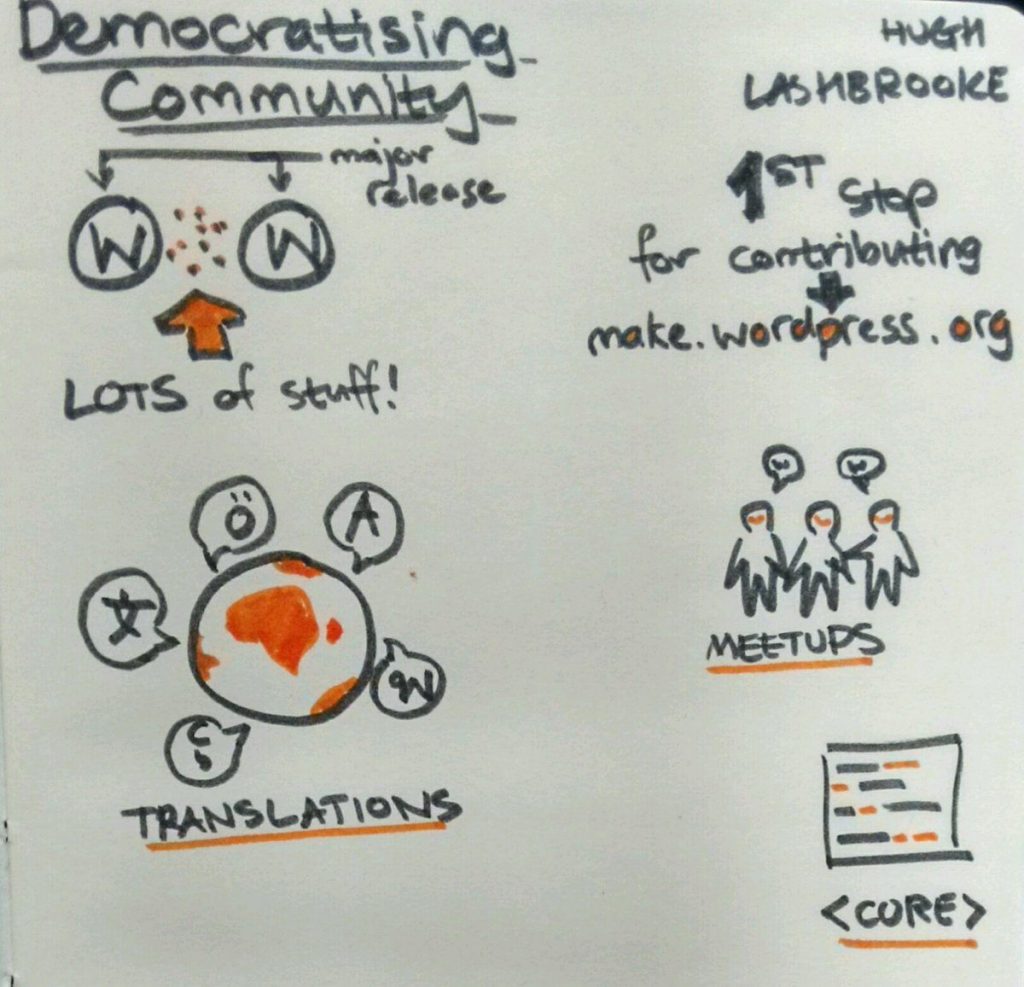 Democratising
Community
HUGH
LASHBROOKE
major
release
W W
LOTS of stuff!
1ST stop
for contributing
make.wordpress.org
Ö A
文
TRANSLATIONS
w w
MEETUPS
<CORE>